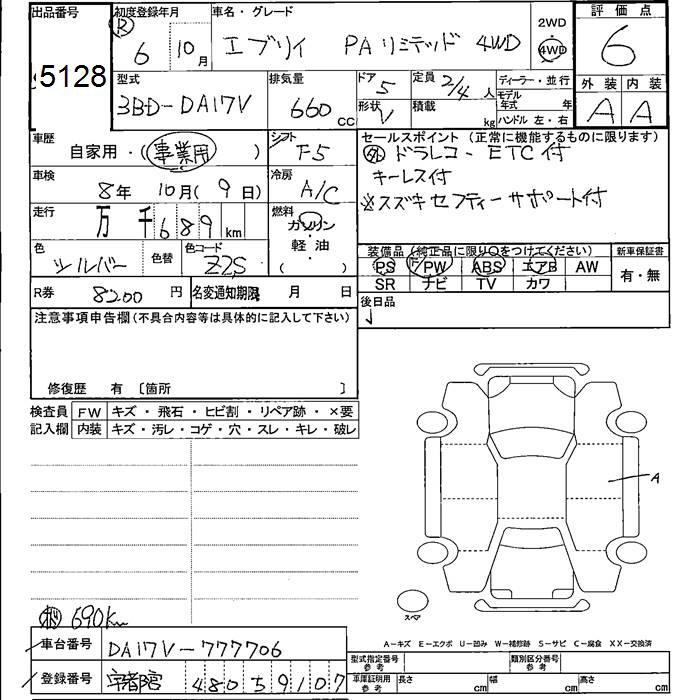 出品番号
5128
初度登録年月
R 6 10月
車名・グレード
エブリイ PAリミテッド 4WD
2WD
4WD
評価点
6
外装 内装
A A
型式
3BD-DA17V
排気量
660 CC
ドア 5
形状 V
定員 2/4 人
積載 kg
ディーラー・並行
モデル年式 年
ハンドル 左・右
車歴
自家用・(事業用 )
シフト
F5
車検
8年 10月( 9日)
冷房
A/C
走行
万 千 6 8 9 km
燃料
ガソリン
軽油
( )
色
シルバー
色替
色コード
Z2S
セールスポイント (正常に機能するものに限ります)
外 ドラレコ・ETC付
キーレス付
※スズキセフティーサポート付
装備品 (純正品に限り○をつけてください)
PS PW ABS エアB AW
SR ナビ TV カワ
新車保証書
有・無
R券 8200 円
名変通知期限 月 日
後日品
注意事項申告欄(不具合内容等は具体的に記入して下さい)
修復歴 有 〔箇所 〕
検査員 FW キズ・飛石・ヒビ割・リペア跡・×要
記入欄 内装 キズ・汚レ・コゲ・穴・スレ・キレ・破レ
A
スペア
690km
車台番号 DA17V-777706
登録番号 宇都宮 480 5 9107
A-キズ E-エクボ U-凹み W-補修跡 S-サビ C-腐食 XX-交換済
型式指定番号 参考
類別区分番号 参考
車庫証明用 参考 長さ cm 幅 cm 高さ cm